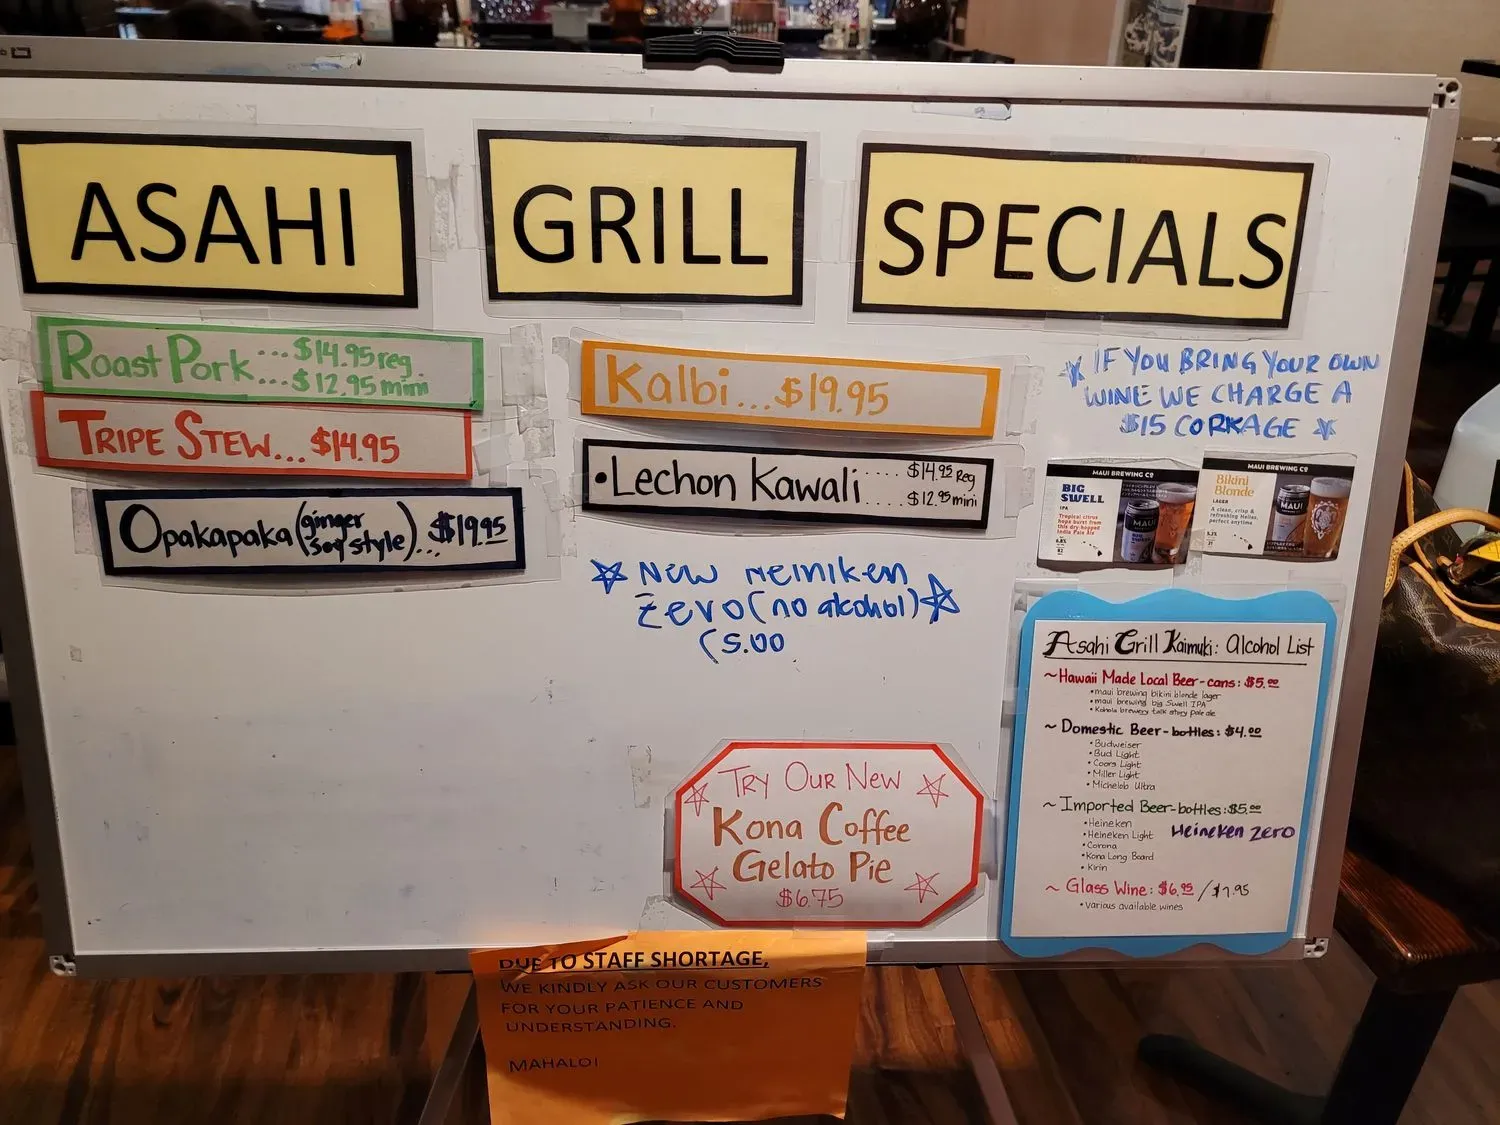 ASAHI GRILL SPECIALS
Roast Pork ... $14.95 reg.
... $12.95 mini
TRIPE STEW... $14.95
Opakapaka (ginger soy style)... $19.95
Kalbi... $19.95
• Lechon Kawali .... $14.95 Reg
.... $12.95 mini
NEW Heiniken
Zero (no alcohol)
(5.00
IF YOU BRING YOUR OWN
WINE WE CHARGE A
$15 CORKAGE
MAUI BREWING CO
BIG
SWELL
IPA
Tropical citrus
hops burst from
this dry-hopped
India Pale Ale
6.8%
MAUI
MAUI BREWING CO
Bikini
Blonde
LAGER
A clean, crisp &
refreshing Helles,
perfect anytime
5.2%
MAUI
Asahi Grill Kaimuki: Alcohol List
~ Hawaii Made Local Beer-cans: $5.00
• maui brewing bikini blonde lager
• maui brewing big swell IPA
• Kohola brewery talk story pale ale
~ Domestic Beer-bottles: $4.00
• Budweiser
• Bud Light
• Coors Light
• Miller Light
• Michelob Ultra
~ Imported Beer-bottles: $5.00
• Heineken
• Heineken Light Heineken Zero
• Corona
• Kona Long Board
• Kirin
~ Glass Wine: $6.95 / $7.95
• various available wines
TRY OUR NEW
Kona Coffee
Gelato Pie
$6.75
DUE TO STAFF SHORTAGE,
WE KINDLY ASK OUR CUSTOMERS
FOR YOUR PATIENCE AND
UNDERSTANDING.
MAHALO!